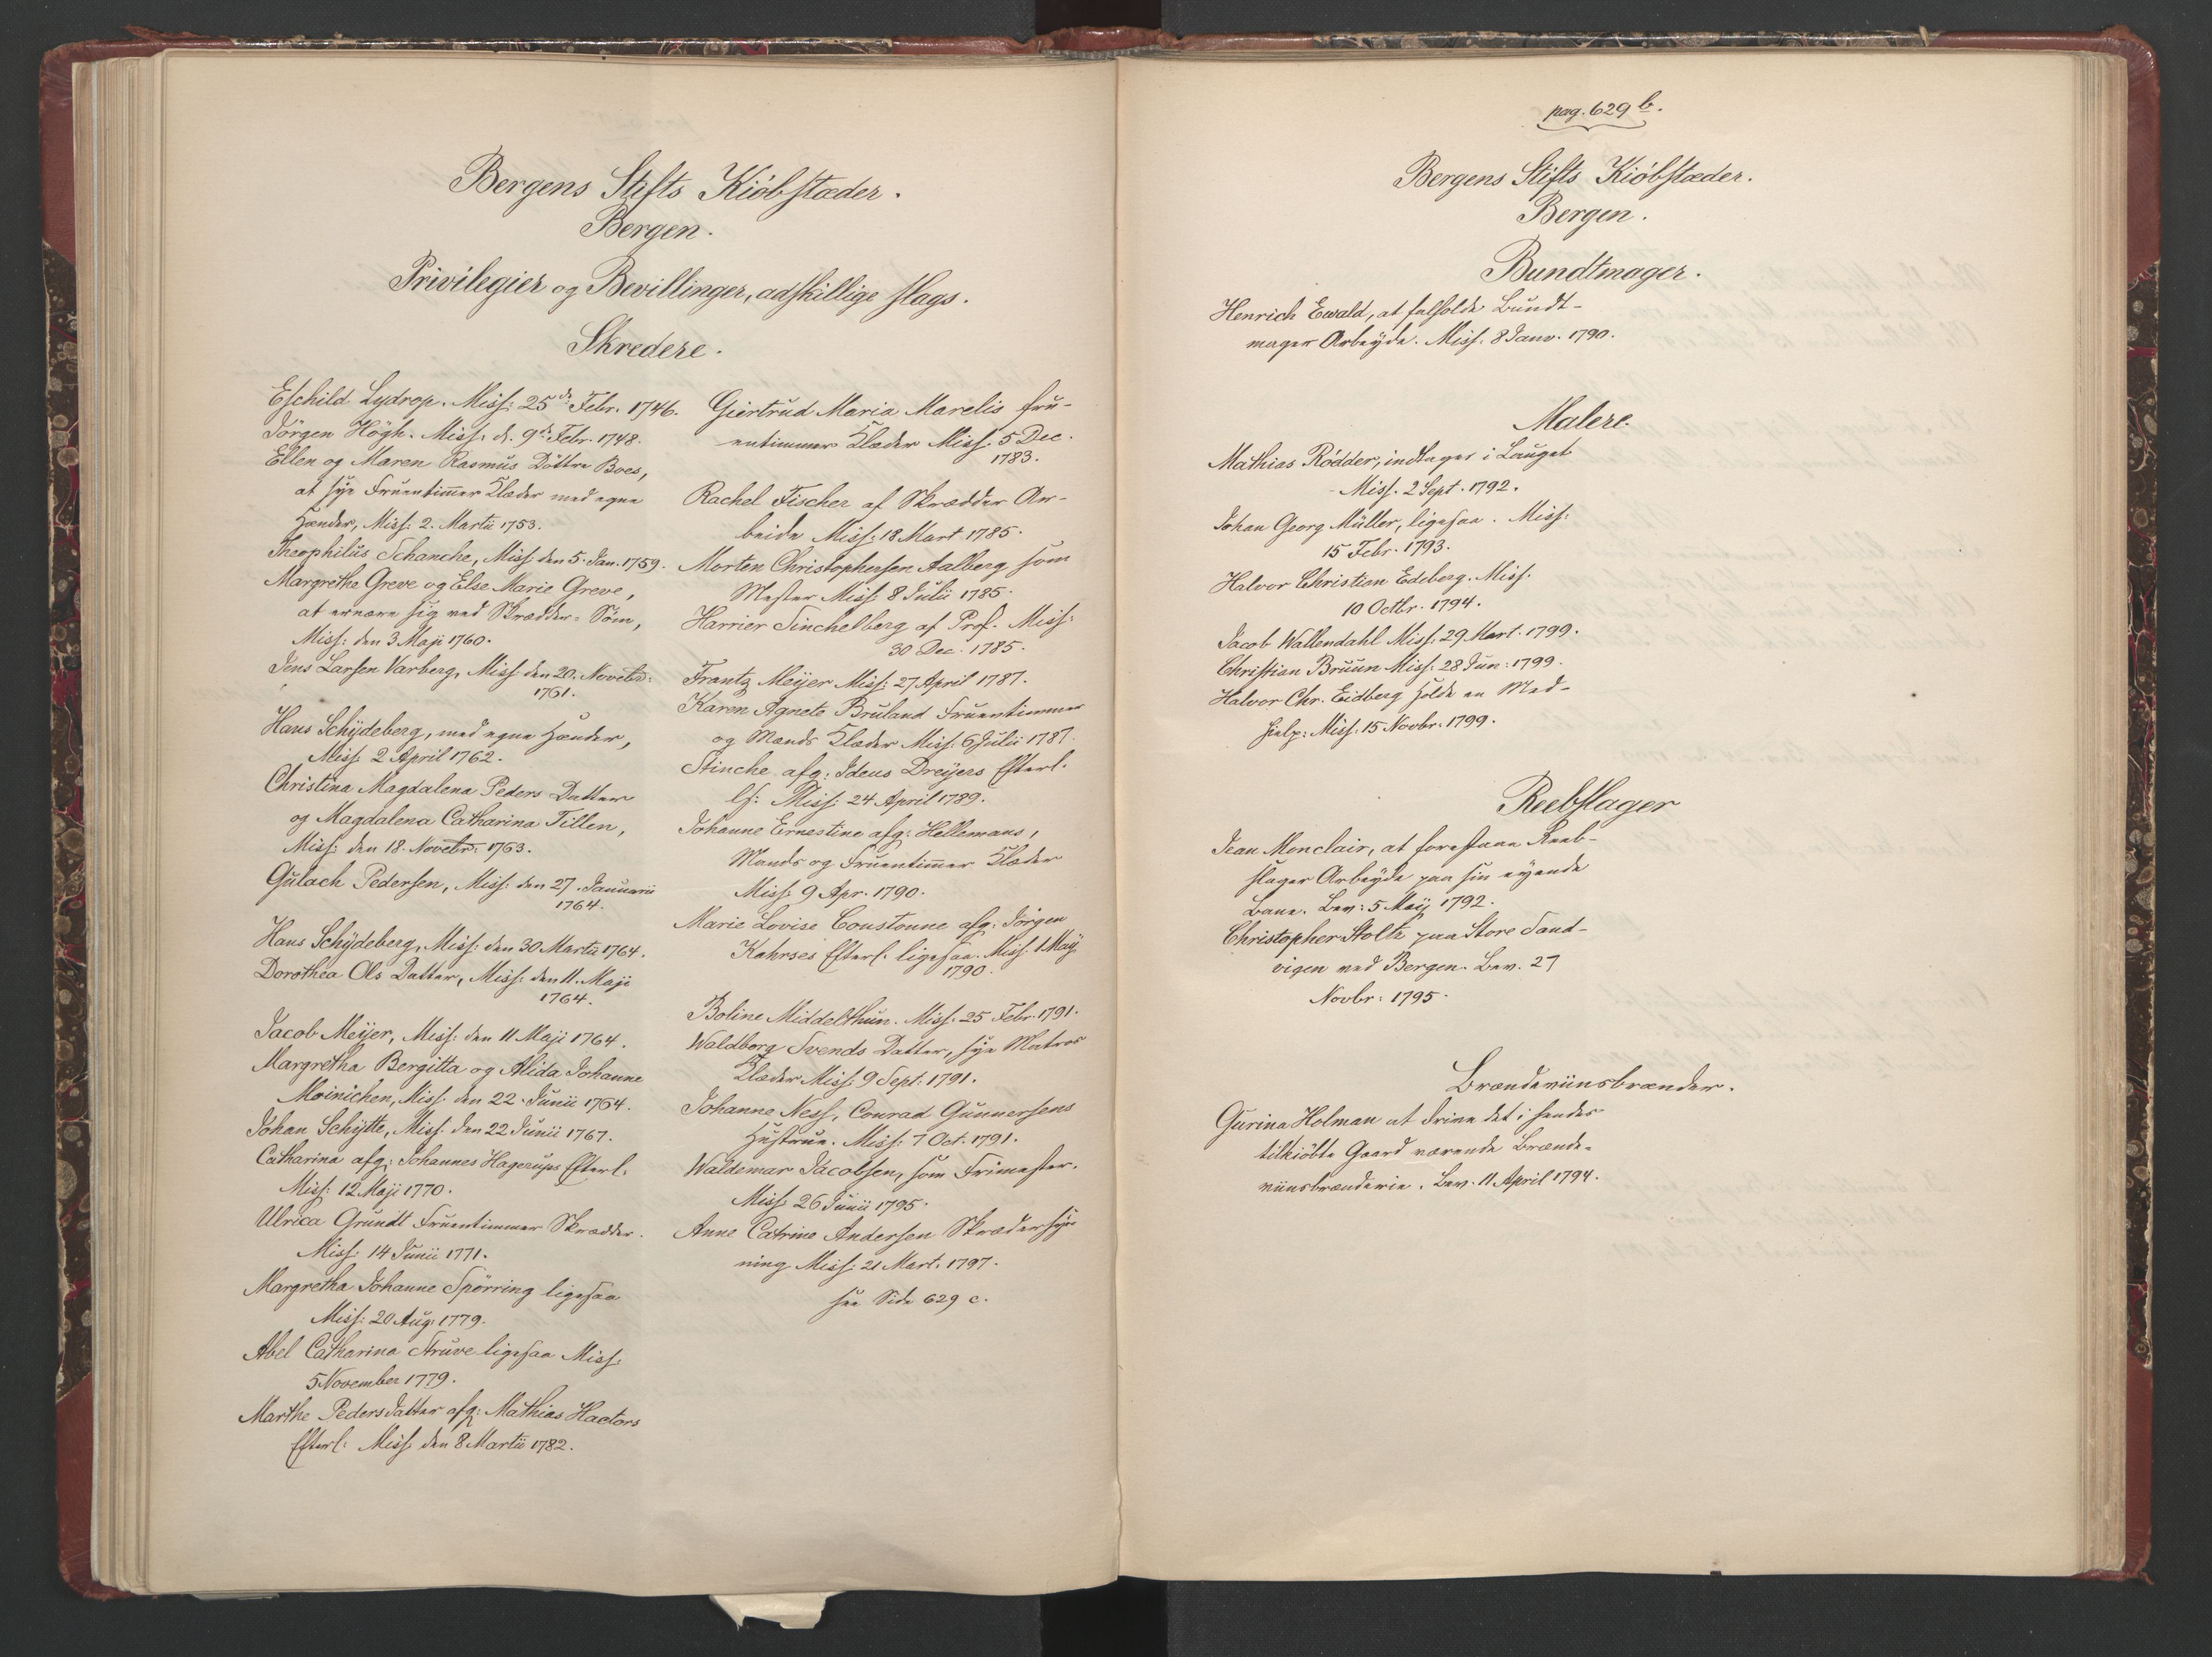 Bergens Stifts Kiöbstæder.
Bergen.
Privilegier og Bevillinger, adskillige slags.
Skredere.
Eschild Lydrop. Miss: 25de Febr. 1746.
Jörgen Högh. Miss: d. 9de Febr. 1748.
Ellen og Maren Rasmus Döttre Boes,
at sye Fruentimer Klæder med egne
Hænder, Miss: 2. Martii 1753.
Theophilus Schanche, Miss den 5. Jan. 1759.
Margrethe Greve og Else Marie Greve,
at ernære sig ved Skrædder=Söm,
Miss: den 3 Maji 1760.
Jens Larsen Varberg, Miss den 20. Novebr:
1761.
Hans Schÿdeberg, med egne Hænder,
Miss: 2 April 1762.
Christina Magdalena Peders Datter
og Magdalena Catharina Tillen,
Miss: den 18. Novebr: 1763.
Gulach Pedersen, Miss: den 27. Januarii
1764.
Hans Schÿdeberg, Miss: den 30 Martii 1764.
Dorothea Ols Datter, Miss: den 11. Maji
1764.
Jacob Meÿer, Miss: den 11 Maji 1764.
Margretha Bergitta og Alida Johanne
Moinichen, Miss: den 22. Junii 1764.
Johan Schÿtte, Miss: den 22 Junii 1767.
Catharina afg: Johannes Hagerups Efterl:
Miss: 12 Maji 1770.
Ulrica Grundt Fruentimmer Skrædder.
Miss: 14 Junii 1771.
Margretha Johanne Spörring ligesaa
Miss: 20 Aug: 1779.
Abel Catharina Struve ligesaa Miss:
5 November 1779.
Marthe Pedersdatter afg: Mathias Hactors
Efterl: Miss den 8 Martii 1782.
Giertrud Maria Marelis fru-
entimmer Klæder Miss: 5 Dec.
1783.
Rachel Fischer af Skrædder Ar-
beide Miss: 18 Mart 1785.
Morten Christophersen Aalberg som
Mester Miss: 8 Julii 1785.
Harrier Tinchelberg af Prof. Miss:
30 Dec: 1785.
Frantz Meÿer Miss: 27 April 1787.
Karen Agnete Bruland Fruentimmer
og Mands Klæder Miss: 6 Julii 1787.
Stinche afg: Ideus Dreÿers Efterl.
Miss: 24 April 1789.
Johanne Ernestine afg: Hellemans,
Mands og Fruentimer Klæder
Miss: 9 Apr. 1790.
Marie Lovise Coustonne afg: Jörgen
Kahrses Efterl. ligesaa. Miss: 1 Maÿ
1790.
Boline Middelthun. Miss: 25 Febr. 1791.
Waldborg Svends Datter, sye Matros
Klæder Miss: 9 Sept: 1791.
Johanne Ness, Conrad Gunnersens
Hustrue. Miss: 7 Oct. 1791.
Waldemar Jacobsen, som Frimester.
Miss: 26 Junii 1795.
Anne Catrine Andersen Skrædersye
ning Miss: 21 Mart. 1797.
see Side 629 c.
pag. 629 b.
Bergens Stifts Kiöbstæder.
Bergen.
Bundtmager.
Henrich Ewald, at falholde Bundt-
mager Arbeÿde. Miss: 8 Janv. 1790.
Malere.
Mathias Rödder, indtages i Lauget
Miss. 2 Sept. 1792.
Johan Georg Müller, ligesaa. Miss:
15 Febr. 1793.
Halvor Christian Edeberg. Miss.
10 Octbr. 1794.
Jacob Wallendahl Miss: 29 Mart. 1799.
Christian Bruun Miss: 28 Jun: 1799.
Halvor Chr. Eidberg holde en Med-
hielp: Miss. 15 Novbr. 1799.
Reebslager
Jean Monclair, at forestaae Reeb-
slager Arbeÿde paa sin eÿende
Bane. Bev: 5 Maÿ 1792.
Christopher Stoltz paa Store Sand-
vigen ved Bergen. Bev. 27
Novbr: 1795.
Brændeviinsbrænder.
Gurina Holman at drive det i hendes
tilkiöbte Gaard værende Brænde-
viinsbrænderie. Bev. 11 April 1794.